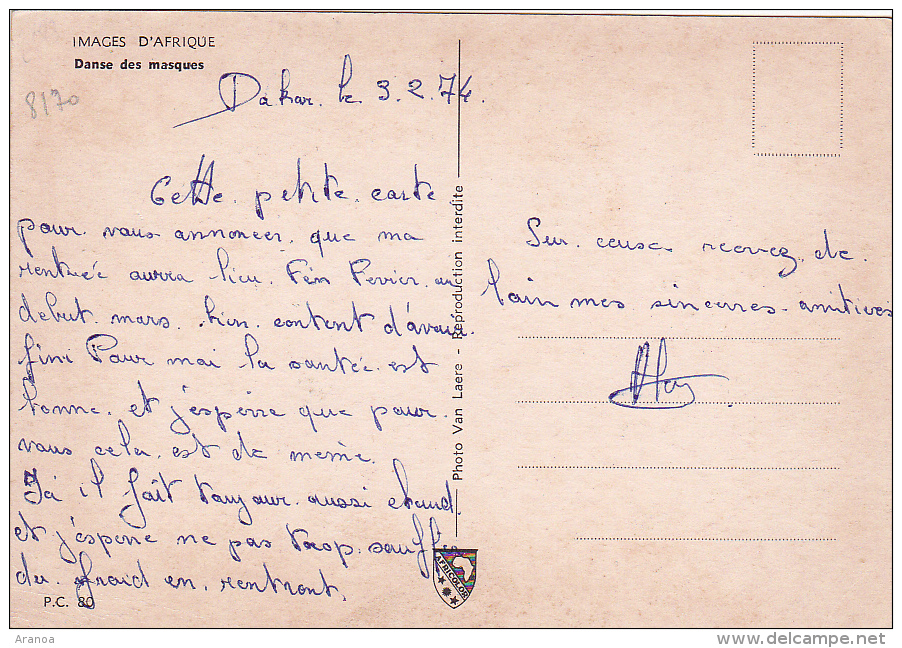 IMAGES D'AFRIQUE
Danse des masques
8170
Dakar. le 3.2.74.
Cette petite carte
pour vous annoncer que ma
rentrée aurra lieu Fin Fevrier au
debut mars. bien content d'avoir
fini Pour moi la santée est
bonne et j'esperre que pour
vous cela est de meme.
il fait toujour aussi chaud.
et j'esperre ne pas trop
du froid en rentront.
P.C. 80
Photo Van Laere - Reproduction interdite
AFRICOLOR
Sur ceuse recevez de
loin mes sincerres amitiers
Aranoa
www.delcampe.net